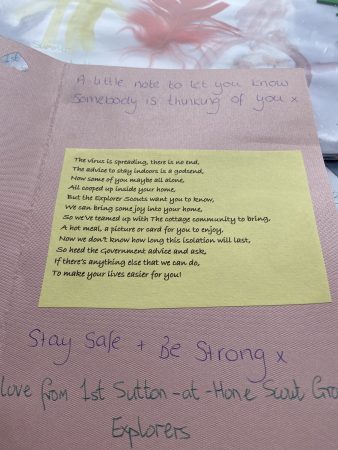 1st
A little note to let you know
Somebody is thinking of you x
The virus is spreading, there is no end,
The advice to stay indoors is a godsend,
Now some of you maybe all alone,
All cooped up inside your home,
But the Explorer Scouts want you to know,
We can bring some joy into your home,
So we've teamed up with The cottage community to bring,
A hot meal, a picture or card for you to enjoy,
Now we don't know how long this isolation will last,
So heed the Government advice and ask,
If there's anything else that we can do,
To make your lives easier for you!
Stay Safe + Be Strong x
love from 1st Sutton-at-Hone Scout Gro
Explorers